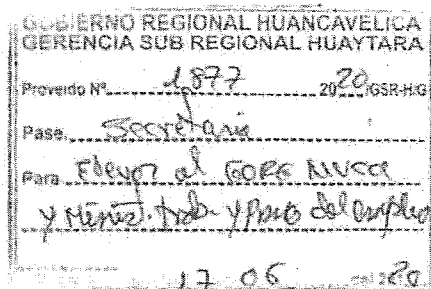 GOBIERNO REGIONAL HUANCAVELICA
GERENCIA SUB REGIONAL HUAYTARA
Proveido Nº 1,877 2020/GSR-H/G
Pase. Secretaria
Para Elevar al GORE HVCA
y Minist. trab. y Promo del empleo
17 06 20